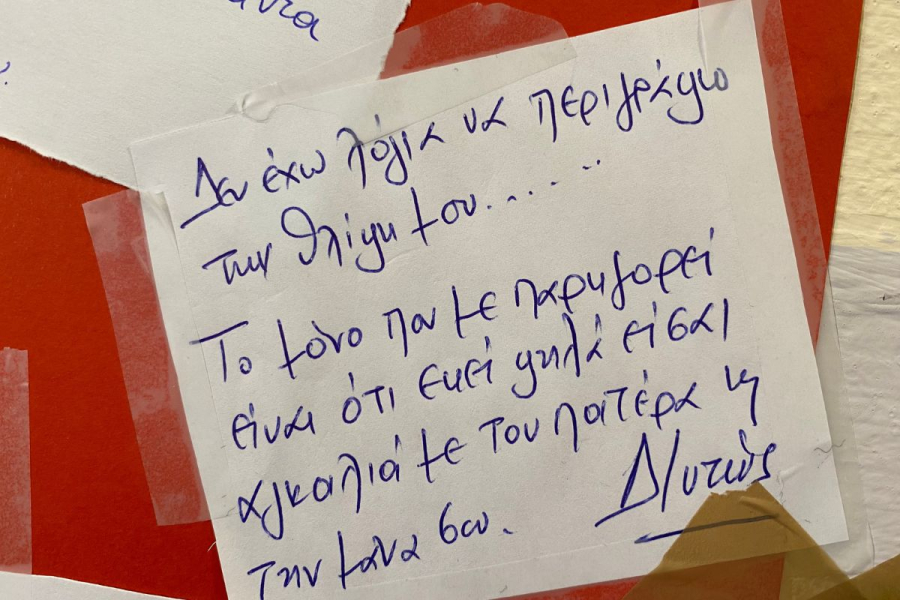 Δεν έχω λόγια να περιγράψω
την θλίψη μου.......
Το μόνο που με παρηγορεί
είναι ότι εκεί ψηλά είσαι
αγκαλιά με τον πατέρα ϗ
την μάνα σου. Δ/ντής